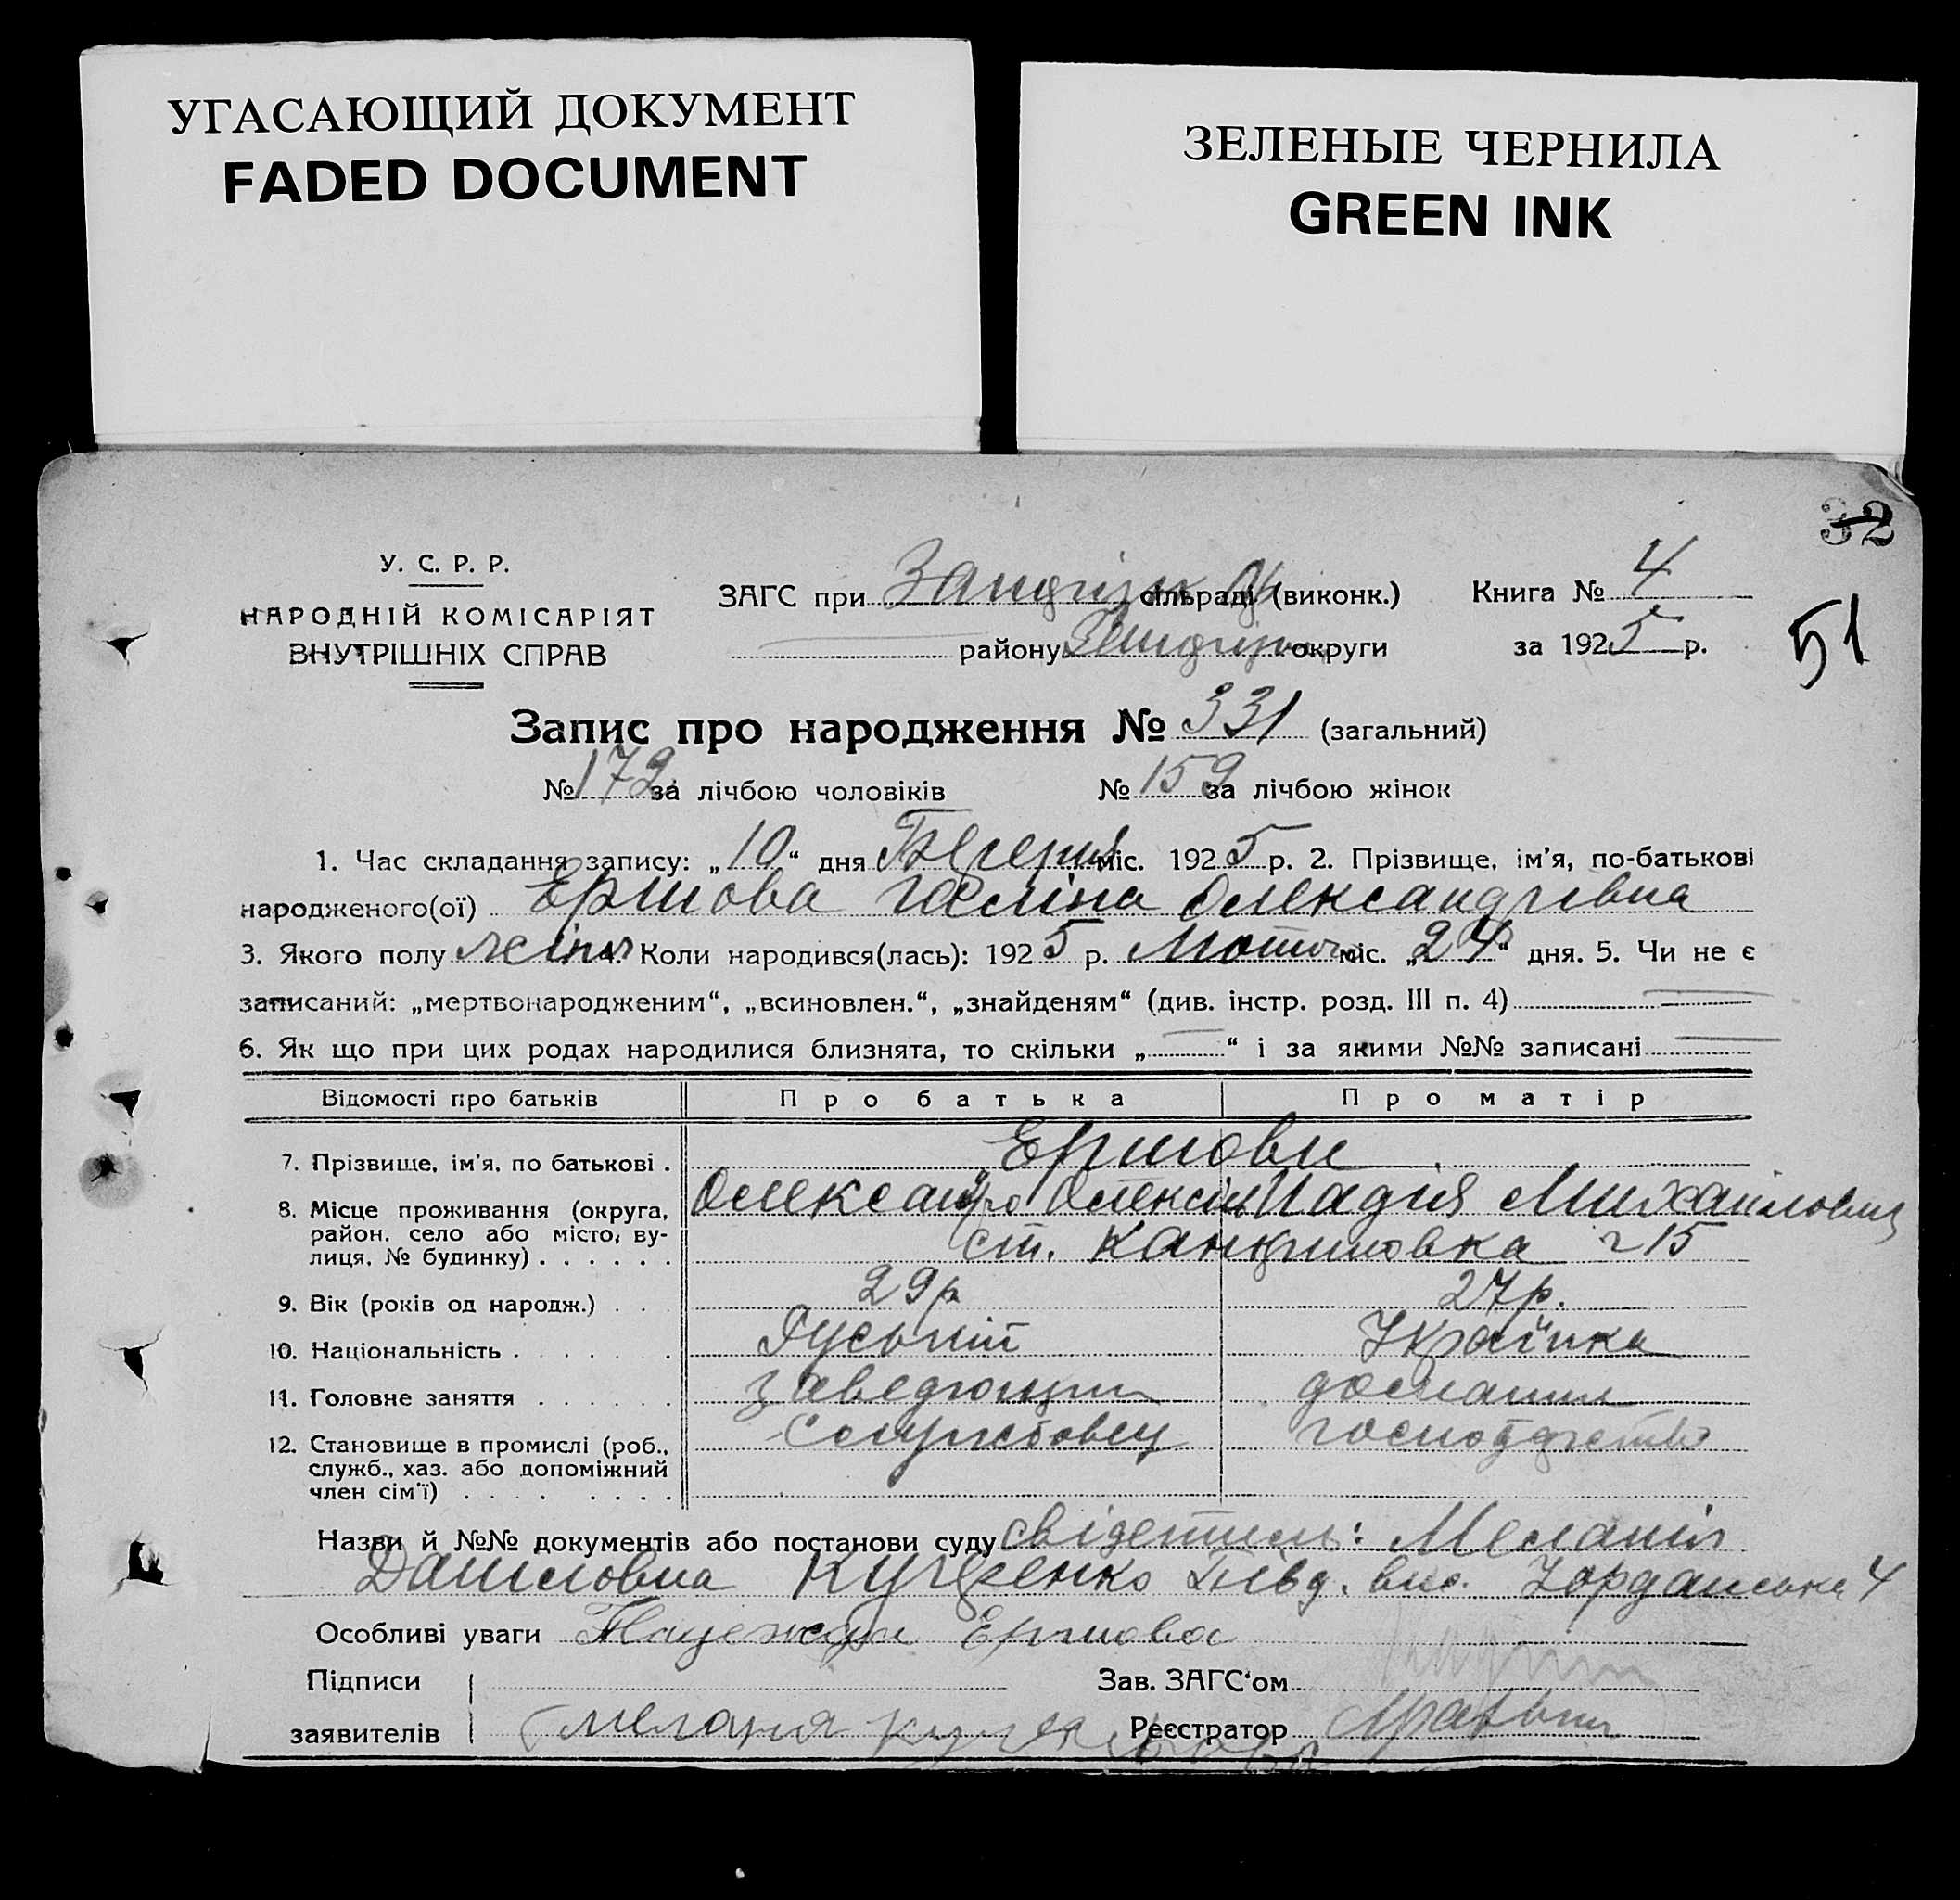 УГАСАЮЩИЙ ДОКУМЕНТ
FADED DOCUMENT
ЗЕЛЕНЫЕ ЧЕРНИЛА
GREEN INK
32
У. С. Р. Р.
НАРОДНІЙ КОМІСАРІЯТ
ВНУТРІШНІХ СПРАВ
ЗАГС при сільраді (виконк.)
району округи
Книга № 4
за 1925 р.
51
Запис про народження № 331 (загальний)
№ 172 за лічбою чоловіків № 159 за лічбою жінок
1. Час складання запису: „10“ дня міс. 1925 р. 2. Прізвище, ім'я, по-батькові
народженого(ої) Ершова Галіна Олександрівна
3. Якого полу жіноч 4. Коли народився(лась): 1925 р. міс. „24“ дня. 5. Чи не є
записаний: „мертвонародженим“, „всиновлен.“, „знайденям“ (див. інстр. розд. III п. 4)
6. Як що при цих родах народилися близнята, то скільки „ “ і за якими №№ записані
Відомості про батьків Про батька Про матір
7. Прізвище, ім'я, по батькові . Ершови
8. Місце проживання (округа, район, село або місто, вулиця, № будинку) . . . . . . Олександро Надія Михайловна
ст. 15
9. Вік (років од народж.) . . . 29р 27р.
10. Національність . . . . . . Руський Українка
11. Головне заняття . . . . . . заведующий домашнє
12. Становище в промислі (роб., служб., хаз. або допоміжний член сім'ї) . . . . . . . . Службовец господарство
Назви й №№ документів або постанови суду свідетель: Меланія
Даниловна Куценко Півд. вис. 4
Особливі уваги Надежда Ершова
Підписи
заявителів Мелания
Зав. ЗАГС'ом
Реєстратор